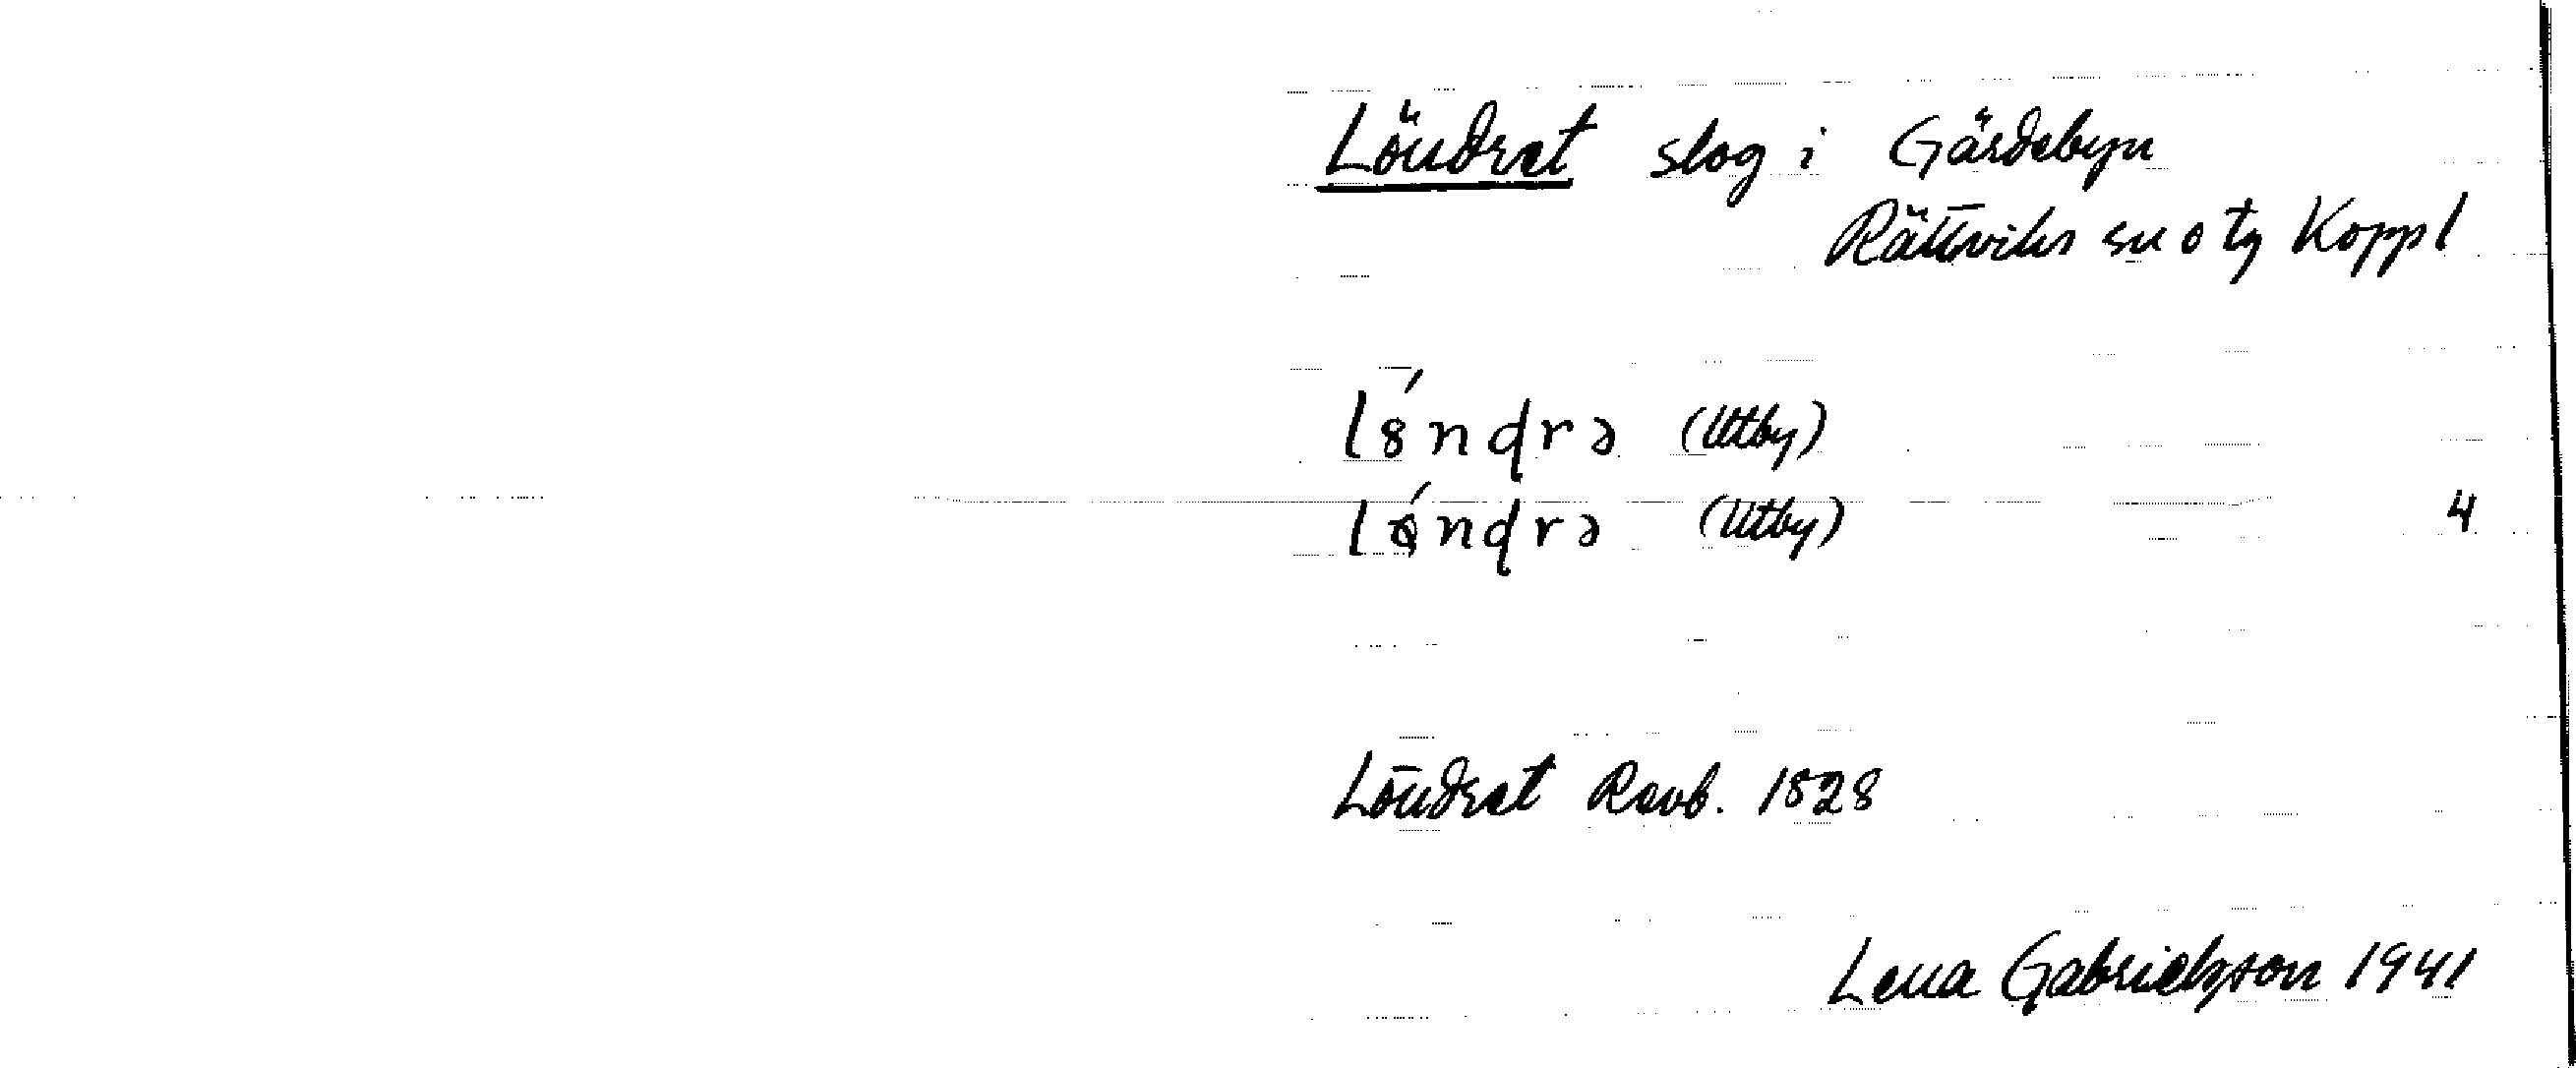 Löndret slog i Gärdebyn
Rättviks sn o tg Koppl
lǿndrə (Utby)
lǿndrə (Utby) 4
Löndret Revb. 1828
Lena Gabrielsson 1941